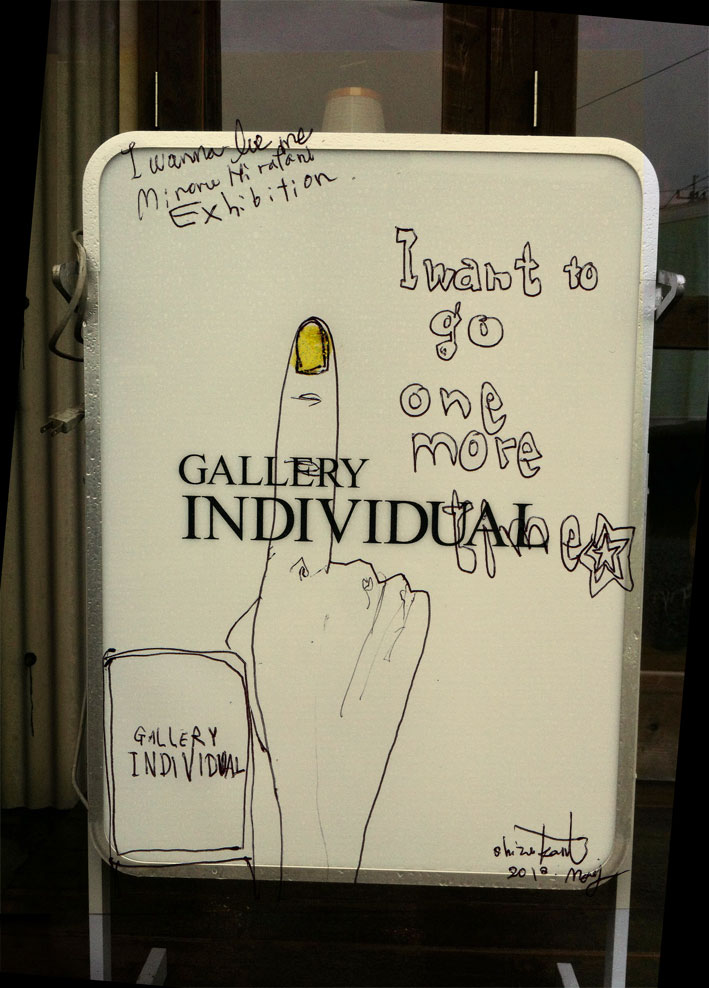 I wanna be me
Minoru Hiratani
Exhibition
I want to
go
one
more
time
GALLERY
INDIVIDUAL
GALLERY
INDIVIDUAL